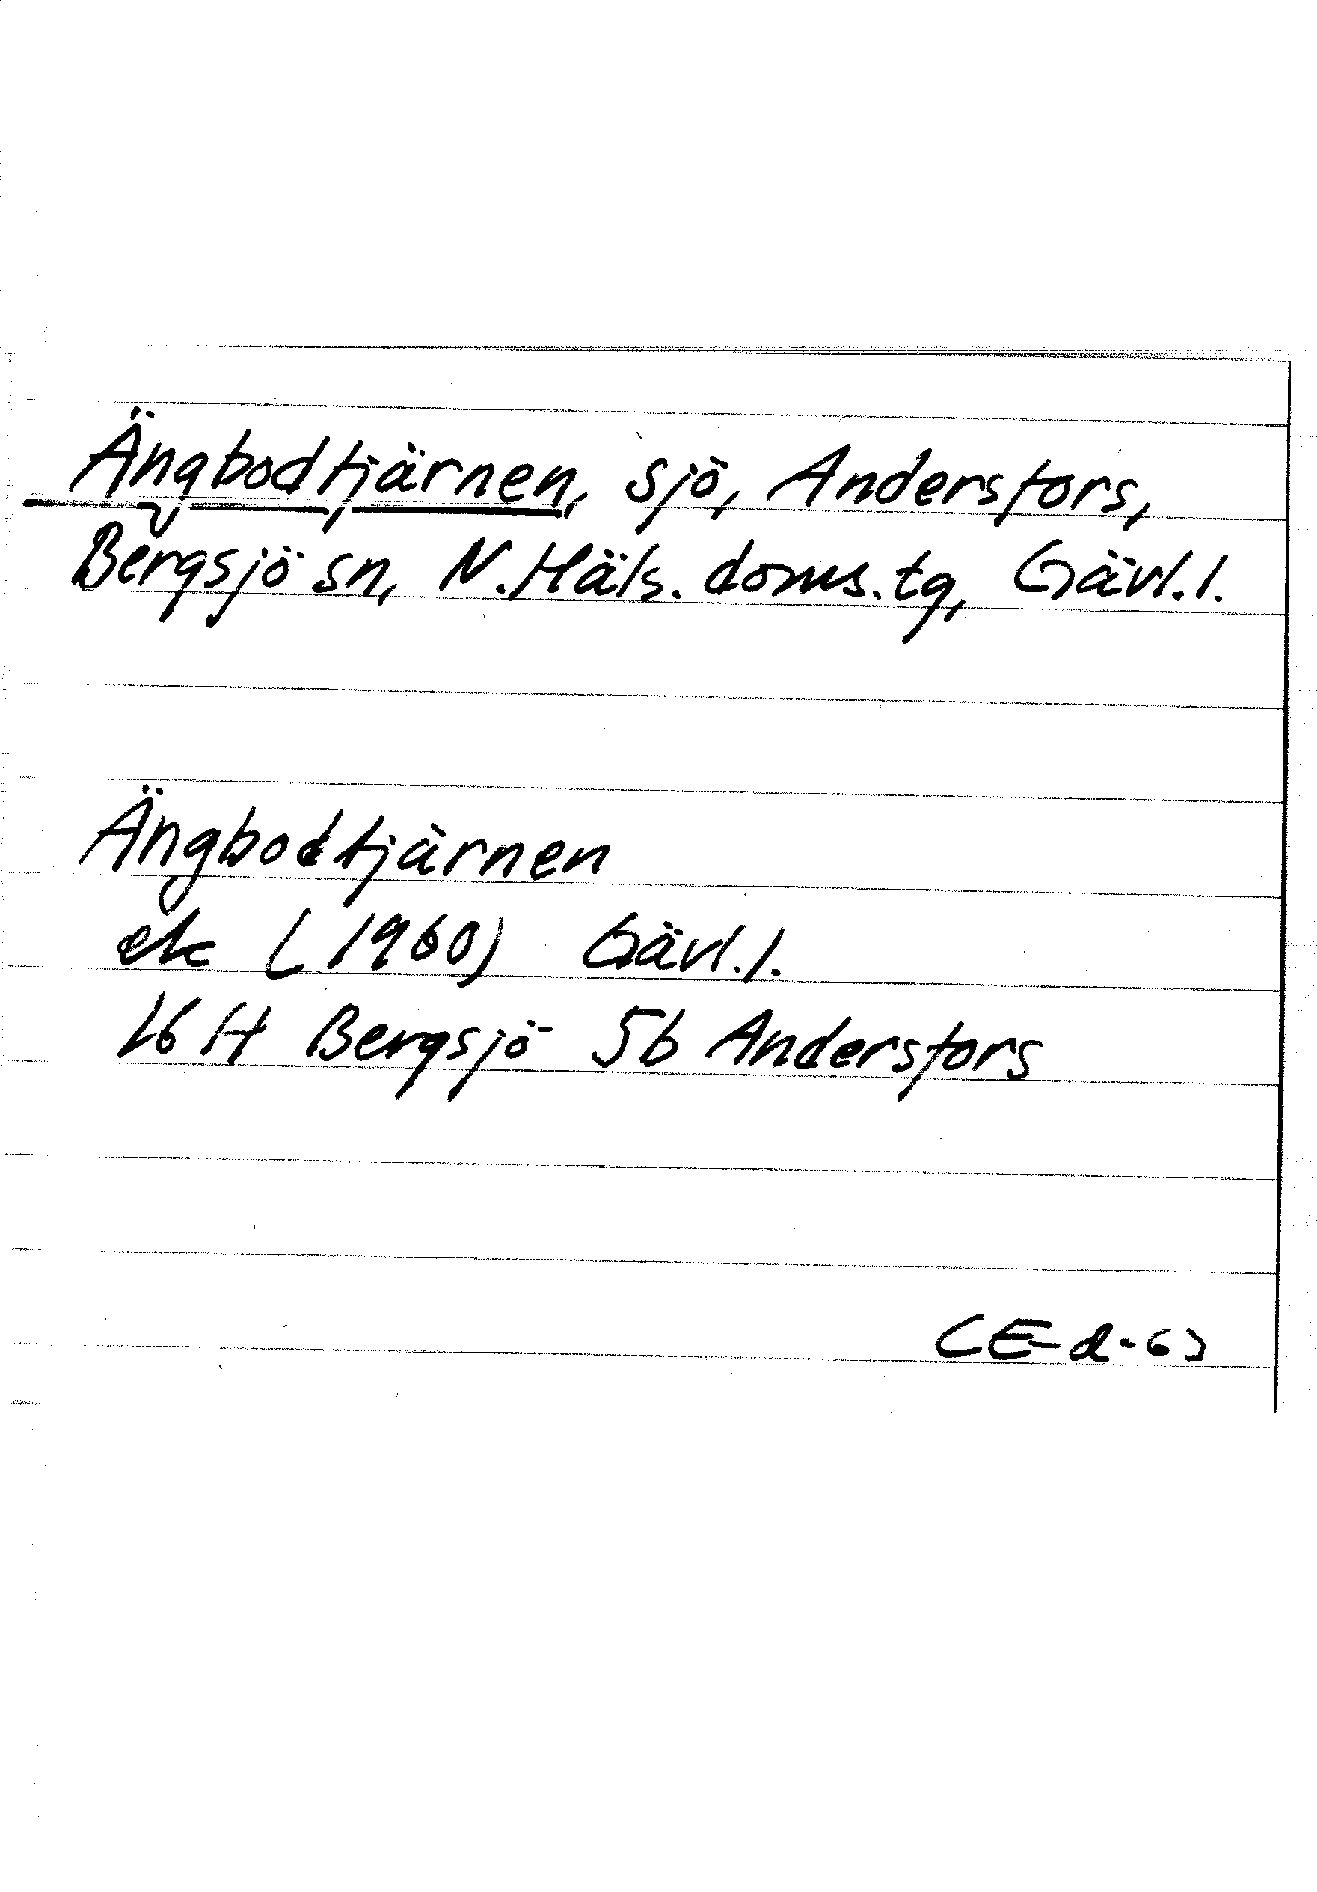 Ängbodtjärnen, sjö, Andersfors,
Bergsjö sn, N.Häls. doms.tg, Gävl.l.
Ängbodtjärnen
ek (1960) Gävl.l.
16 H Bergsjö 5b Andersfors